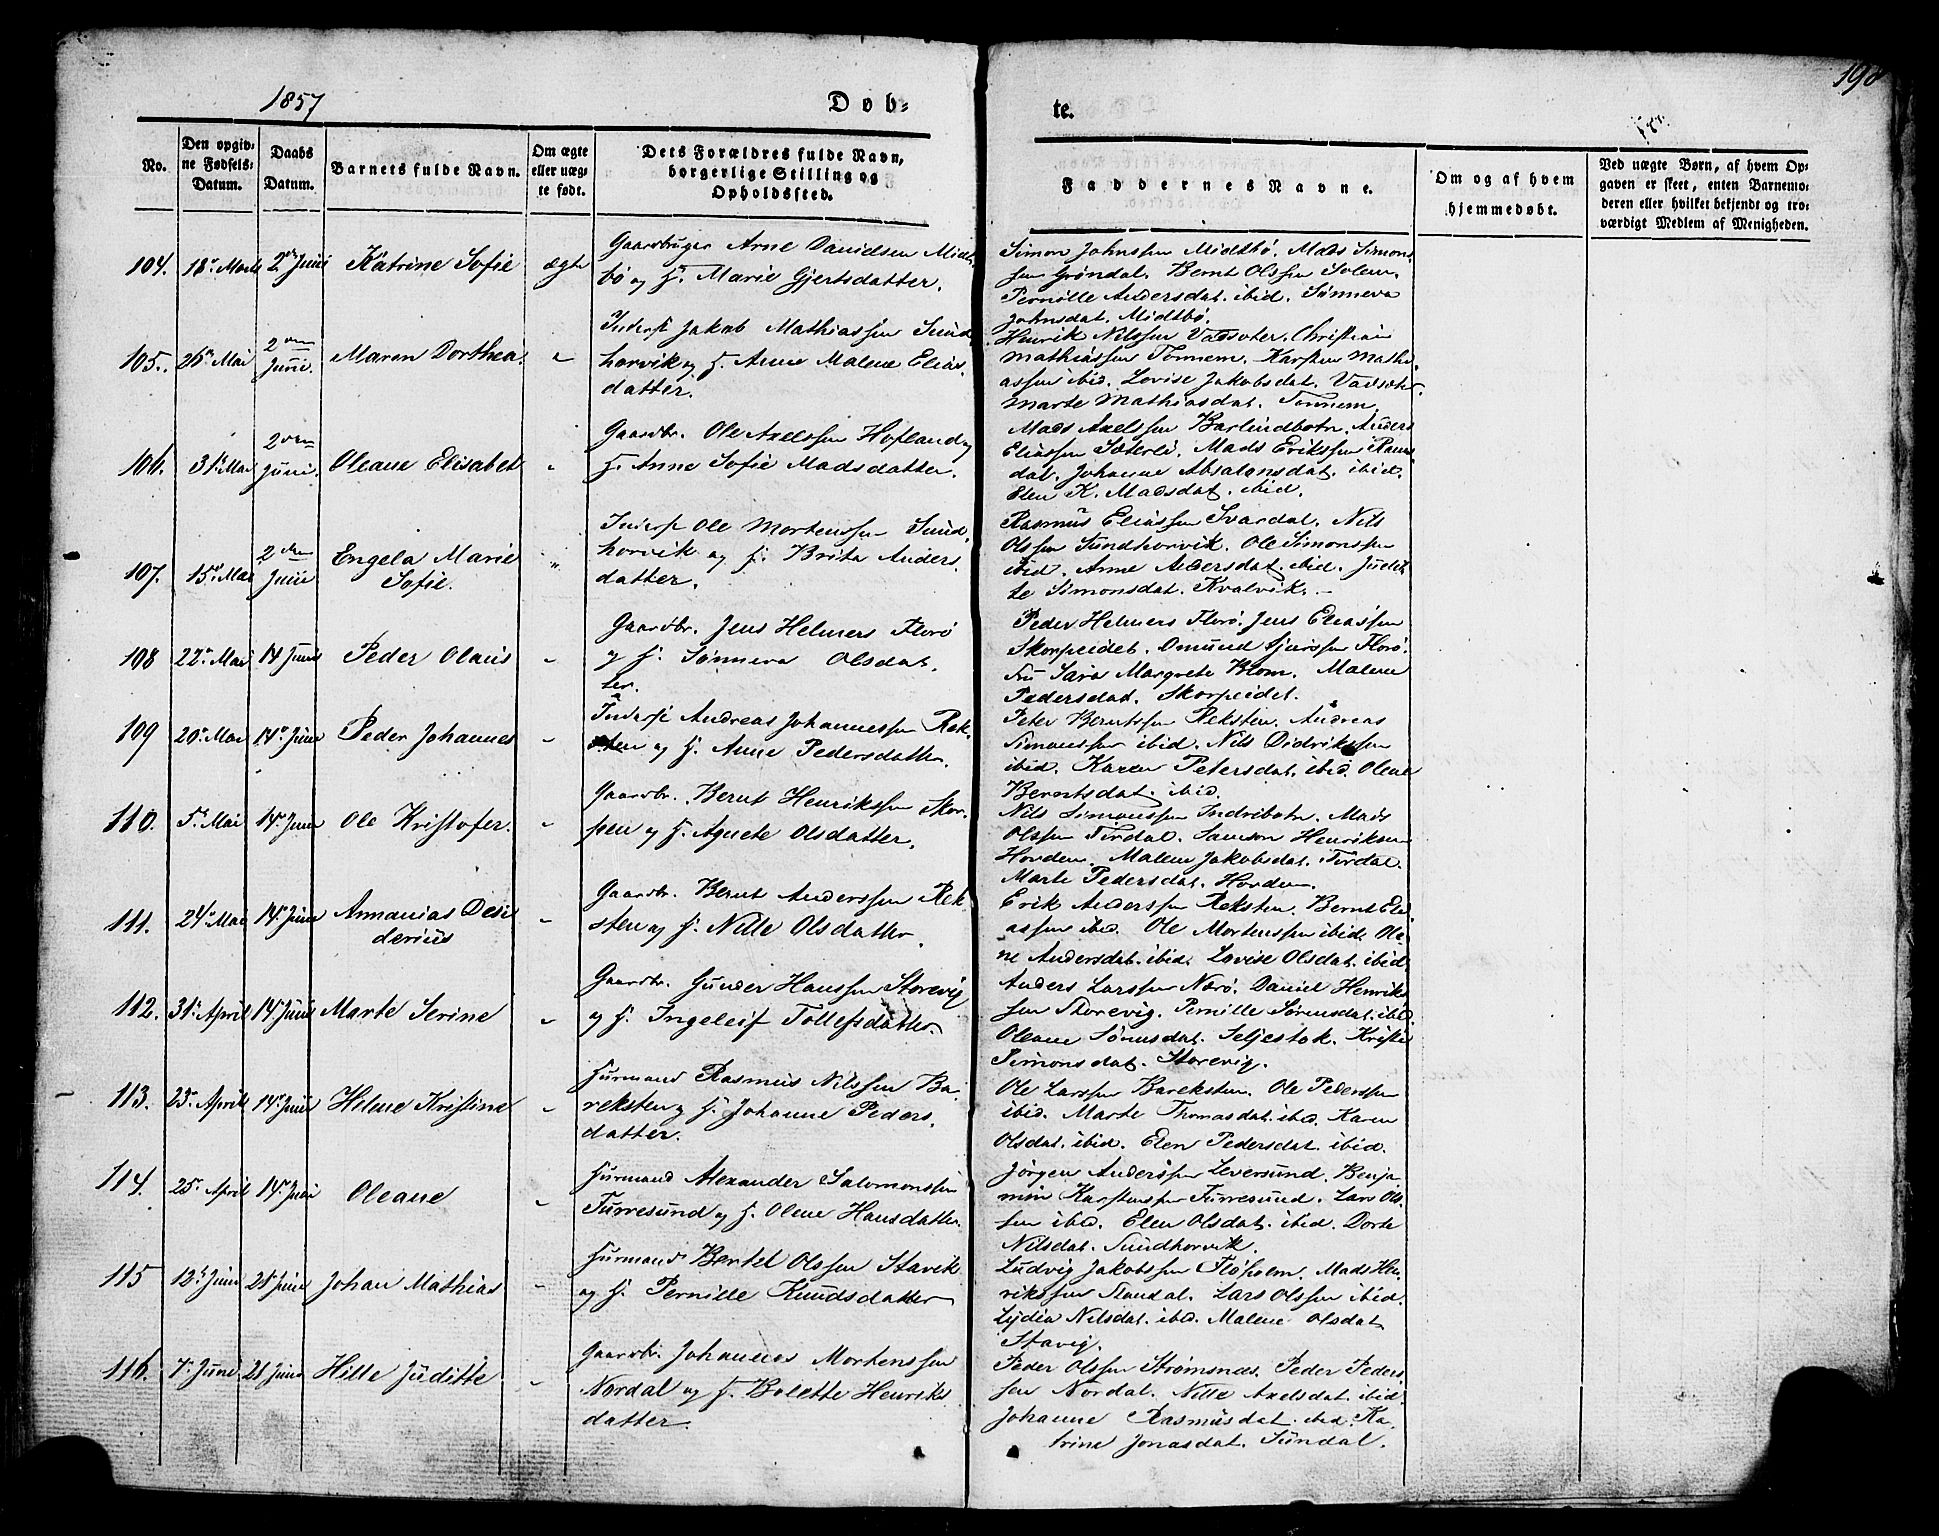 1857
Døb-
te.
198
No.
Den opgiv-
ne Fødsels-
Datum.
Daabs
Datum.
Barnets fulde Navn.
Om ægte
eller uæg-
te født.
Dets Forældres fulde Navn,
borgerlige Stilling og
Opholdssted.
Faddernes Navne.
Om og af hvem
hjemmedøbt.
Ved uægte Børn, af hvem Op-
gaven er skeet, enten Barnemo-
deren eller hvilket bekjendt og tro-
værdigt Medlem af Menigheden.
104. 18de Marts 2den Juni Katrine Sofie ægte
Gaardbruger Arne Davidsen Midt-
bø og H. Marie Gjertsdatter.
Simon Johnssen Midtbø. Mads Simons-
sen Grøndal. Bernt Olssen Solem.
Pernille Andersdat. ibid. Sønneva
Johnsdat. Midtbø.
105. 26de Mai 2den Juni. Maren Dorthea. "
Inderst Jakob Mathiassen Sund-
horvik og H. Anne Malene Elias-
datter.
Henrik Nilssen Vadsøter. Christian
Mathiassen Tonnem. Karsten Mathi-
assen ibid. Lovise Jakobsdat. Vadsøter
Marte Mathiasdat. Tonnem.
106. 31te Mai 2den Juni. Oleane Elisabet "
Gaardbr. Ole Axelssen Hopland og
H. Anne Sofie Madsdatter.
Mads Axelssen Barlindbotn. Anders
Eliassen Sæterli. Mads Erikssen Rams-
dal. Johanne Absalonsdat. ibid.
Elen K. Madsdat. ibid.
107. 15de Mai 2den Juni Engela Marie
Sofie. "
Inderst Ole Mortenssen Sund-
horvik og H. Brita Anders-
datter.
Rasmus Eliassen Svardal. Nils
Olssen Sundhorvik. Ole Simonssen
ibid. Anne Andersdat. ibid. Judit-
te Simonsdat. Kvalvik. -
108 22de Mai 14 Juni Peder Olaus "
Gaardbr. Jens Helmers Florø
og H. Sønneva Olsdat-
ter.
Peder Helmers Florø. Jens Eliassen
Skorpeidet. Omund Sjurssen Florø.
Fru Sara Margrete Blom. Malene
Pedersdat. Skorpeidet.
109 20de Mai 14de Juni Peder Johannes "
Inderst Andreas Johannessen Rek-
sten og H. Anne Pedersdatter.
Peter Berntssen Reksten. Andreas
Simonssen ibid. Nils Didrikssen
ibid. Karen Petersdat. ibid. Olene
Berntsdat. ibid.
110. 5te Mai 14de Juni Ole Kristofer. "
Gaardbr. Bernt Henrikssen Skor-
pen og H. Agnete Olsdatter.
Nils Simonssen Indrebotn. Mads
Olssen Tirdal. Samson Henrikssen
Horden. Malene Jakobsdat. Tirdal.
Marte Pedersdat. Horden.
111. 24de Mai 14de Juni Annanias Desi-
derius "
Gaardbr. Bernt Anderssen Rek-
sten og H. Nille Olsdatter.
Erik Anderssen Reksten. Bernt Eli-
assen ibid. Ole Mortenssen ibid. Ole-
ne Andersdat. ibid. Lovise Olsdat. ibid.
112. 31te April 14de Juni Marte Serine "
Gaardbr. Gunder Hanssen Storevig
og H. Ingeleif Tollefsdatter.
Anders Larssen Nærø. Daniel Henriks-
sen Storevig. Pernille Sørensdat. ibid.
Oleane Sørensdat. Seljestok. Kristi
Simonsdat. Storevig.
113. 23de April 14de Juni Helene Kristine "
Huusmand Rasmus Nilssen Ba-
reksten og H. Johanne Peders-
datter.
Ole Larssen Bareksten. Ole Pederssen
ibid. Marte Thomasdat. ibid. Karen
Olsdat. ibid. Elen Pedersdat. ibid.
114. 25de April 14de Juni Oleane "
Huusmand Alexander Salomonssen
Furresund og H. Olene Hansdatter.
Jørgen Anderssen Leversund. Benja-
min Karstenssen Furresund. Lars Ols-
sen ibid. Elen Olsdat. ibid. Dorte
Nilsdat. Sundhorvik.
115 12te Juni 21de Juni Johan Mathias "
Huusmand Bertel Olssen Stavik
og H. Pernille Knudsdatter
Ludvig Jakobssen Floholm. Mads Hen-
rikssen Standal. Lars Olssen ibid.
Lydia Nilsdat. ibid. Malene Olsdat
Stavig.
116. 7de Juni 21 Juni Hille Juditte "
Gaardbr. Johannes Mortenssen
Nordal og H. Bolette Henriks-
datter.
Peder Olssen Strømsnes. Peder Peders-
sen Nordal. Nille Axelsdat. ibid.
Johanne Rasmusdat. ibid. Ka-
trine Jonasdat. Sundal.